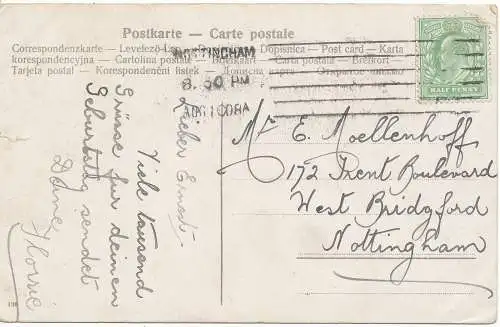 Postkarte – Carte postale
Correspondenzkarte – Levelező-Lap Dopisnica – Post card – Karta
korespondencyjna – Cartolina postale – Briefkort
Tarjeta postal – Korespondenční lístek –
NOTTINGHAM
8. 30 PM
HALF PENNY
Lieber Ernst.
Viele tausend
Grüsse für deinen
Geburtstag sendet
Deine
Mr E. Moellenhoff
172 Trent Boulevard
West Bridgford
Nottingham